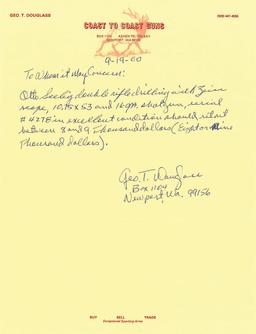 GEO. T. DOUGLASS
COAST TO COAST GUNS
NEWPORT, WA 99156
9-19-00
To Whom it May Concern:
Otto Seelig double rifle drilling with Zeiss
scope, 10.75 x 53 and 16 ga. shotgun, serial
# 4278 in excellent condition should retail
between 8 and 9 Thousand dollars (Eight or Nine
Thousand dollars).
Geo. T. Douglass
Box 1104
Newport, Wa. 99156
BUY SELL TRADE
Exceptional Sporting Arms